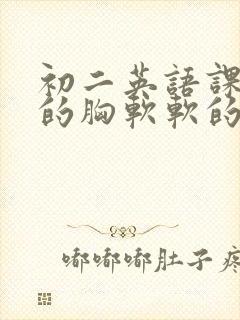 初二英語課
的胸軟軟的
嘟嘟嘟肚子疼